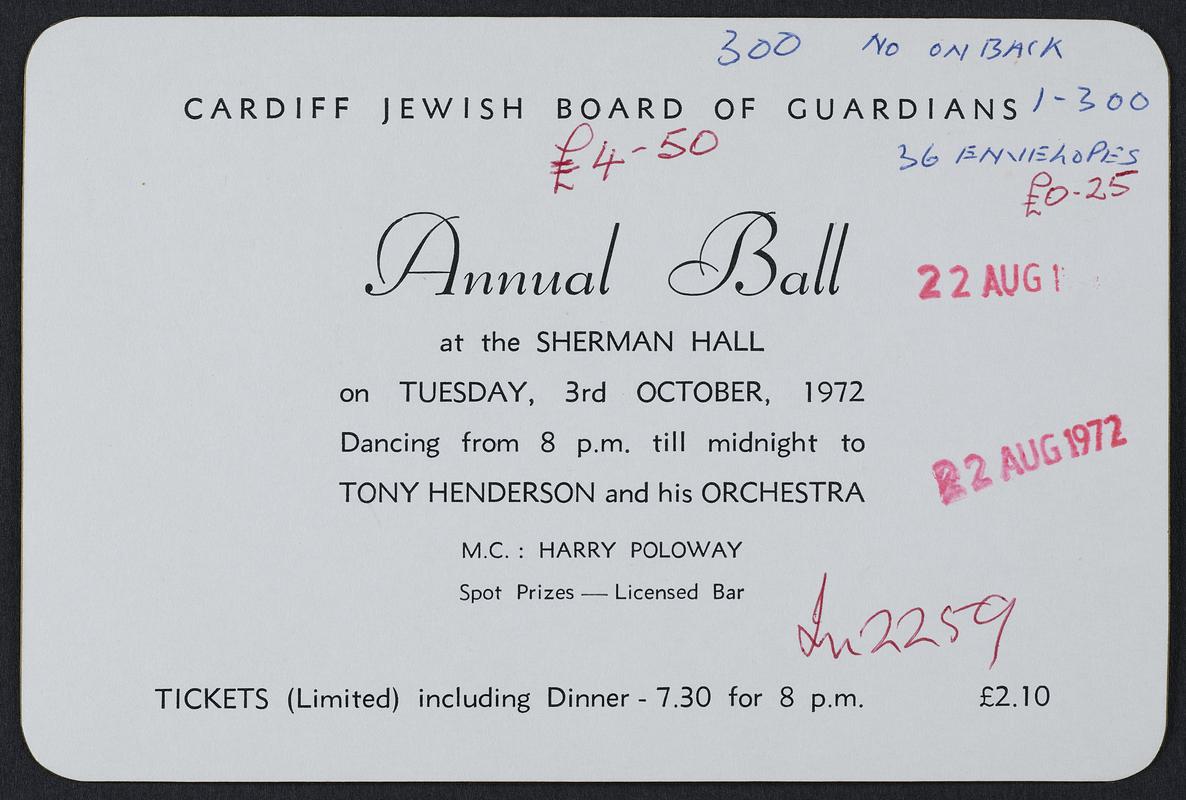 300 No ON BACK
CARDIFF JEWISH BOARD OF GUARDIANS 1-300
£4-50
36 ENVELOPES
£0-25
Annual Ball
22 AUG 1
at the SHERMAN HALL
on TUESDAY, 3rd OCTOBER, 1972
Dancing from 8 p.m. till midnight to
22 AUG 1972
TONY HENDERSON and his ORCHESTRA
M.C. : HARRY POLOWAY
Spot Prizes — Licensed Bar
In 2259
TICKETS (Limited) including Dinner - 7.30 for 8 p.m. £2.10